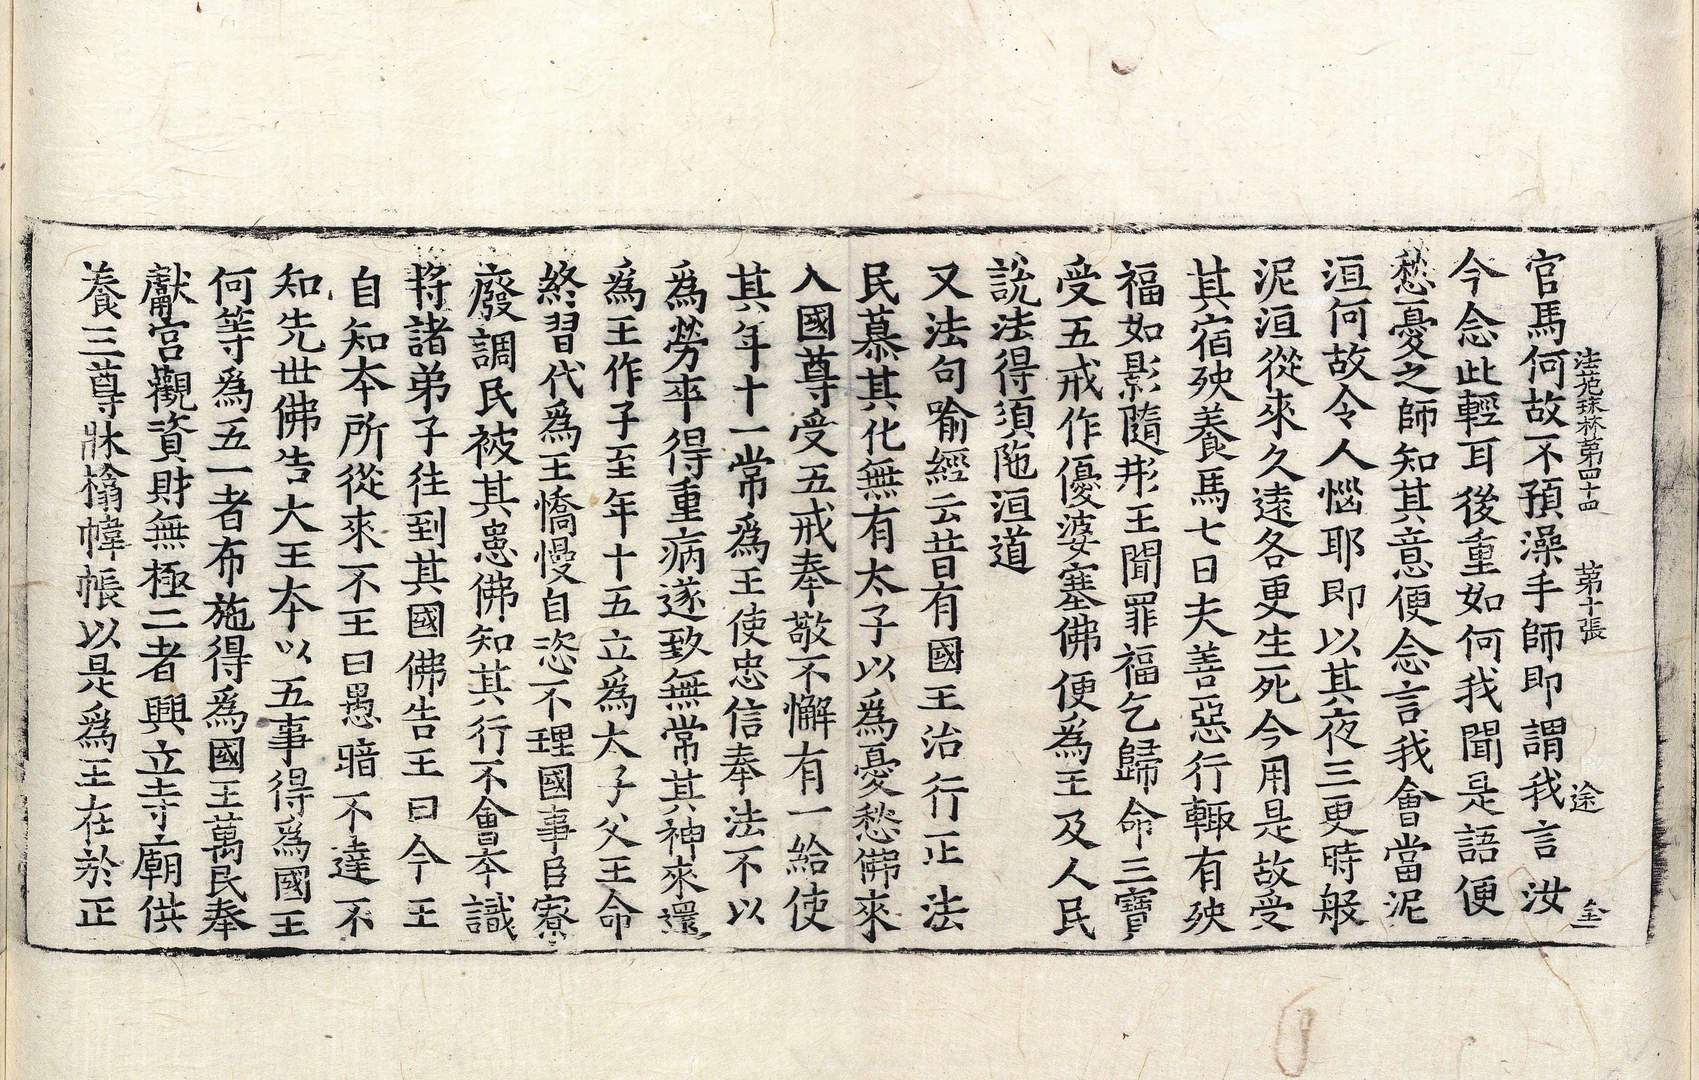 法苑珠林第四十四 第十張 途
官馬何故不預澡手師即謂我言汝
今念此輕耳後重如何我聞是語便
愁憂之師知其意便念言我會當泥
洹何故令人惱耶即以其夜三更時般
泥洹從來久遠各更生死今用是故受
其宿殃養馬七日夫善惡行輒有殃
福如影隨形王聞罪福乞歸命三寶
受五戒作優婆塞佛便為王及人民
說法得須陁洹道
又法句喻經云昔有國王治行正法
民慕其化無有太子以為憂愁佛來
入國尊受五戒奉敬不懈有一給使
其年十一常為王使忠信奉法不以
為勞卒得重病遂致無常其神來還
為王作子至年十五立為太子父王命
終習代為王憍慢自恣不理國事臣寮
廢調民被其患佛知其行不會本識
將諸弟子往到其國佛告王曰今王
自知本所從來不王曰愚暗不達不
知先世佛告大王本以五事得為國王
何等為五一者布施得為國王萬民奉
獻宮觀資財無極二者興立寺廟供
養三尊牀榻幃帳以是為王在於正